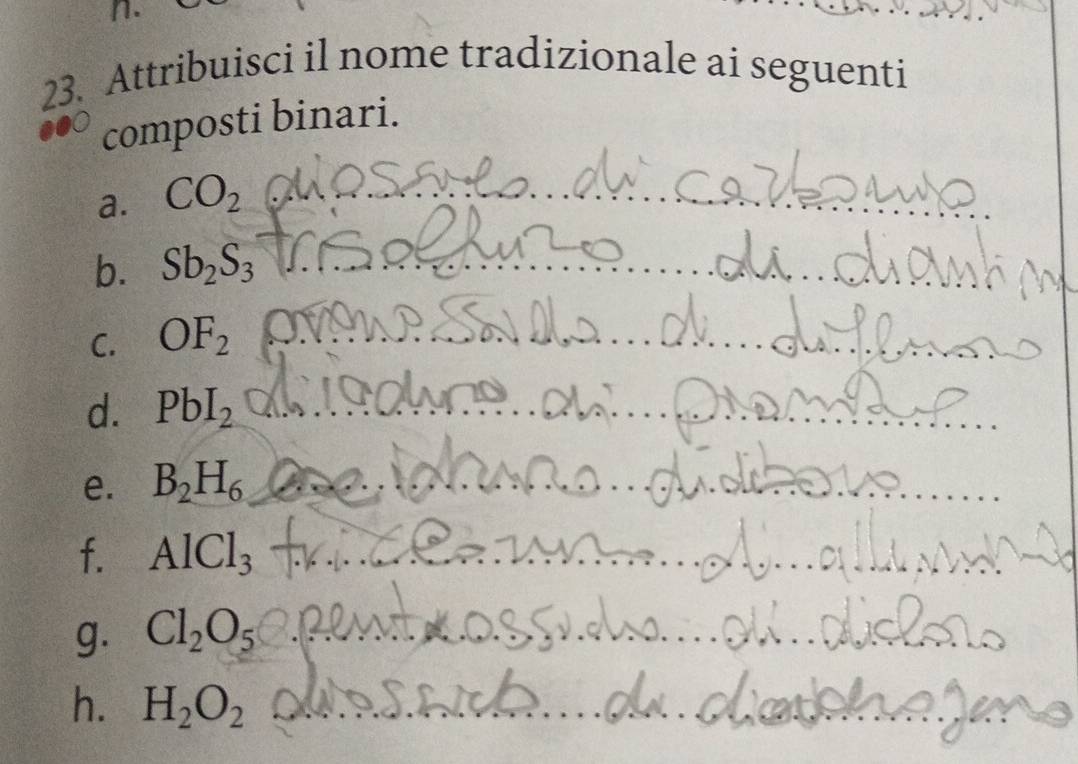 23. Attribuisci il nome tradizionale ai seguenti
composti binari.
a. CO₂ diossido di carbonio
b. Sb₂S₃ trisolfuro di diantim
c. OF₂ di
d. PbI₂ diioduro di piombo
e. B₂H₆ idruro di diboro
f. AlCl₃ tricloruro di alluminio
g. Cl₂O₅ pentaossido di dicloro
h. H₂O₂ diossido di